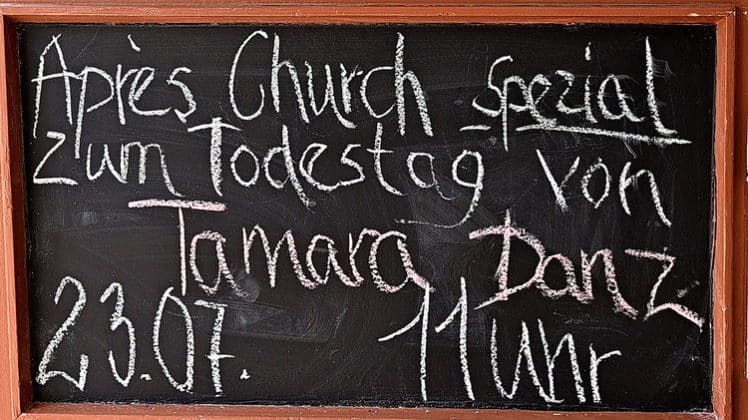 Après Church spezial
zum Todestag von
Tamara Danz
23.07. 11 Uhr